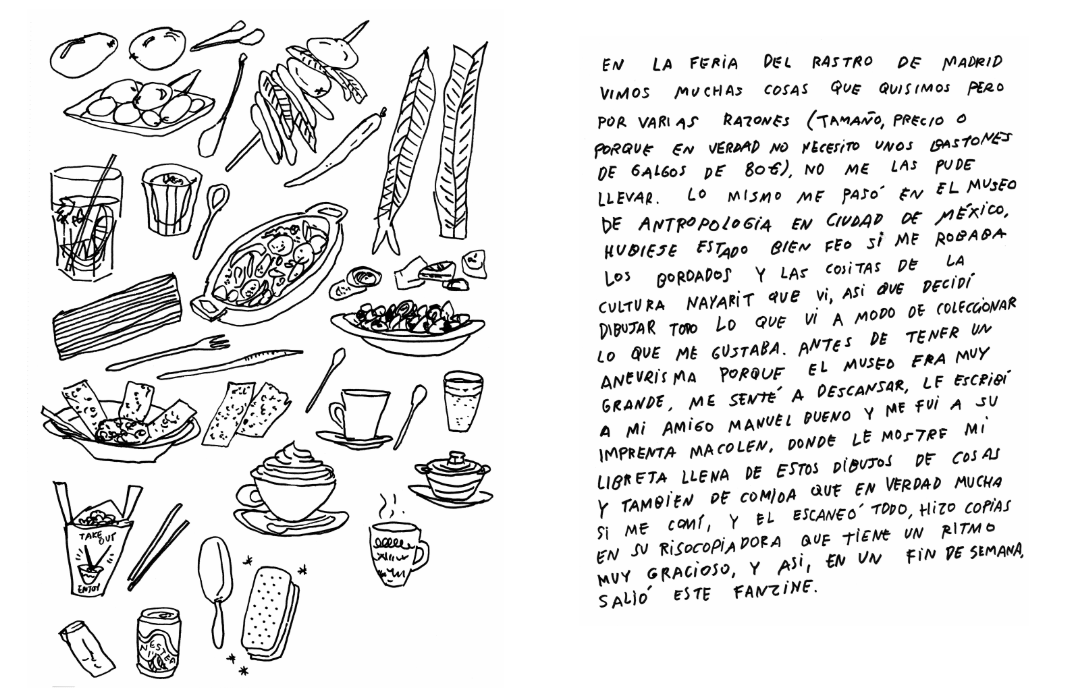 TAKE
OUT
ENJOY
NESTEA
EN LA FERIA DEL RASTRO DE MADRID
VIMOS MUCHAS COSAS QUE QUISIMOS PERO
POR VARIAS RAZONES (TAMAÑO, PRECIO O
PORQUE EN VERDAD NO NECESITO UNOS BASTONES
DE GALGOS DE 80€), NO ME LAS PUDE
LLEVAR. LO MISMO ME PASÓ EN EL MUSEO
DE ANTROPOLOGIA EN CIUDAD DE MÉXICO,
HUBIESE ESTADO BIEN FEO SI ME ROBABA
LOS BORDADOS Y LAS COSITAS DE LA
CULTURA NAYARIT QUE VI, ASI QUE DECIDÍ
DIBUJAR TODO LO QUE VI A MODO DE COLECCIONAR
LO QUE ME GUSTABA. ANTES DE TENER UN
ANEURISMA PORQUE EL MUSEO ERA MUY
GRANDE, ME SENTÉ A DESCANSAR, LE ESCRIBÍ
A MI AMIGO MANUEL BUENO Y ME FUI A SU
IMPRENTA MACOLEN, DONDE LE MOSTRE MI
LIBRETA LLENA DE ESTOS DIBUJOS DE COSAS
Y TAMBIÉN DE COMIDA QUE EN VERDAD MUCHA
SI ME COMÍ, Y EL ESCANEÓ TODO, HIZO COPIAS
EN SU RISOCOPIADORA QUE TIENE UN RITMO
MUY GRACIOSO, Y ASI, EN UN FIN DE SEMANA,
SALIÓ ESTE FANZINE.